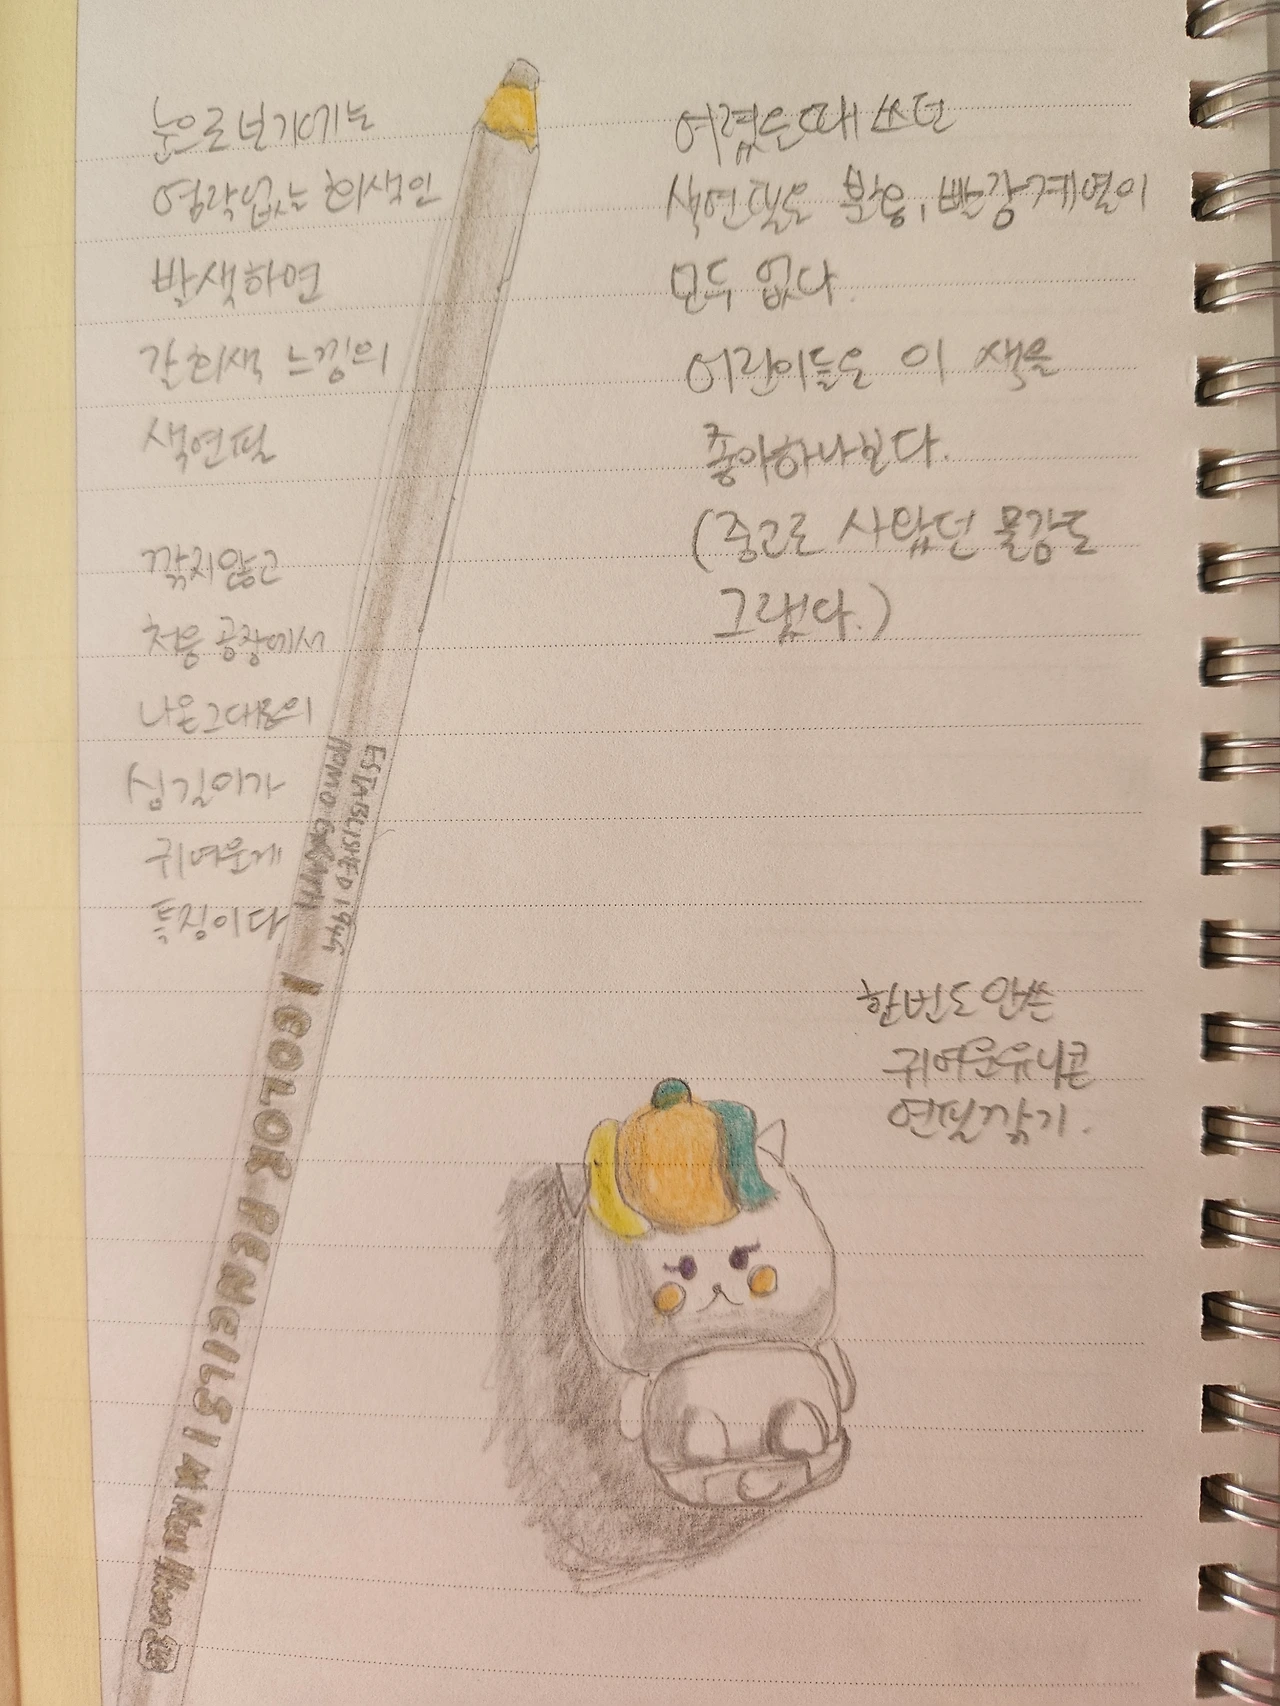 눈으로 보기에는
영락없는 회색인
발색하면
갈회색 느낌의
색연필
깎지않고
처음 공장에서
나온그대로의
심길이가
귀여운게
특징이다
ESTABLISHED 194
I COLOR PENCILS I
어렸을때 쓰던
색연필은 분홍, 빨강계열이
모두 없다.
어린이들은 이 색을
좋아하나보다.
(중고로 사왔던 물감도
그랬다.)
한번도안쓴
귀여운유니콘
연필깎기.